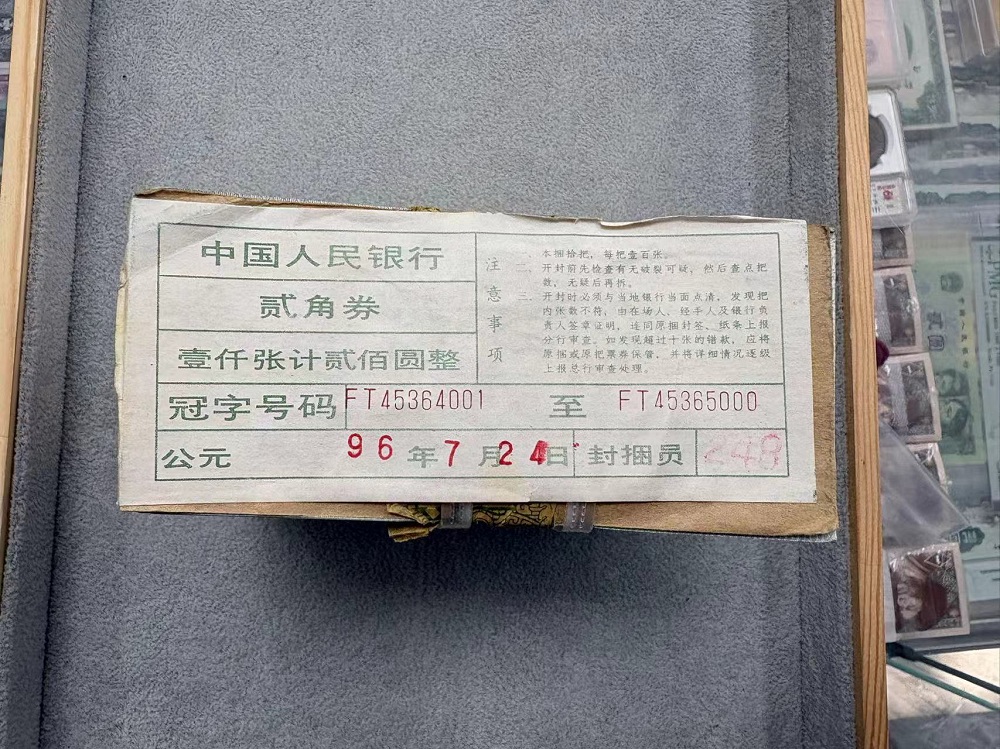 中国人民银行
贰角券
壹仟张计贰佰圆整
注意事项
一、本捆拾把，每把壹百张。
二、开封前先检查有无破裂可疑，然后查点把
数，无疑后再拆。
三、开封时必须与当地银行当面点清，发现把
内张数不符，由在场人、经手人及银行负
责人签章证明，连同原捆封签、纸条上报
分行审查。如发现超过十张的错款，应将
原捆或原把票券保管，并将详细情况逐级
上报总行审查处理。
冠字号码 FT45364001 至 FT45365000
公元 96 年 7 月 24 日 封捆员 248